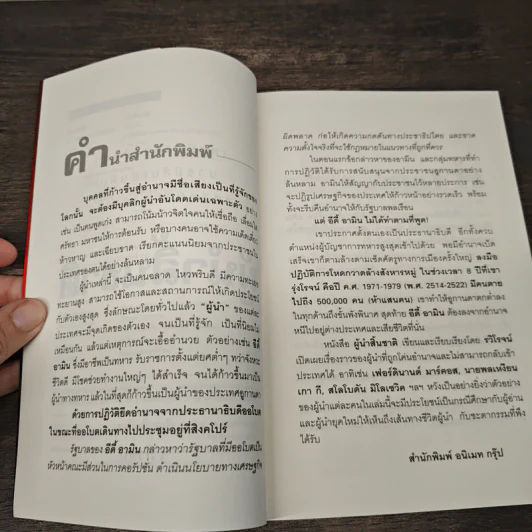 คำนำสำนักพิมพ์
บุคคลที่ก้าวขึ้นสู่อำนาจมีชื่อเสียงเป็นที่รู้จักของ
โลกนั้น จะต้องมีบุคลิกผู้นำอันโดดเด่นเฉพาะตัว อย่าง
เช่น เป็นคนพูดเก่ง สามารถโน้มน้าวจิตใจคนให้เชื่อถือ เลื่อมใส
ศรัทธา มหาชนให้การต้อนรับ หรือบางคนอาจใช้ความเด็ดเดี่ยว
ห้าวหาญ และเฉียบขาด เรียกคะแนนนิยมจากประชาชนใน
ประเทศของตนได้อย่างล้นหลาม
ผู้นำเหล่านี้ จะเป็นคนฉลาด ไหวพริบดี มีความทะเยอ
ทะยานสูง สามารถใช้โอกาสและสถานการณ์ให้เกิดประโยชน์
กับตัวเองสูงสุด ซึ่งลักษณะโดยทั่วไปแล้ว "ผู้นำ" ของแต่ละ
ประเทศจะมีจุดเกิดของตัวเอง จนเป็นที่รู้จัก เป็นที่นิยมไม่
เหมือนกัน แล้วแต่เหตุการณ์จะเอื้ออำนวย ตัวอย่างเช่น อีดี้
อามิน ซึ่งมีอาชีพเป็นทหาร รับราชการตั้งแต่ยศต่ำๆ ทว่าจังหวะ
ชีวิตดี มีโชคช่วยทำงานใหญ่ๆ ได้สำเร็จ จนได้ก้าวขึ้นมาเป็น
ผู้นำทางทหาร แล้วในที่สุดก็ก้าวขึ้นเป็นผู้นำของประเทศอูกานดา
ด้วยการปฏิวัติยึดอำนาจจากประธานาธิบดีออโบเต
ในขณะที่ออโบเตเดินทางไปประชุมอยู่ที่สิงคโปร์
รัฐบาลของ อีดี้ อามิน กล่าวหาว่ารัฐบาลที่มีออโบเตเป็น
หัวหน้าคณะมีส่วนในการคอรัปชั่น ดำเนินนโยบายทางเศรษฐกิจ
ผิดพลาด ก่อให้เกิดความกดดันทางประชาธิปไตย และขาด
ความตั้งใจจริงที่จะใช้กฎหมายในแนวทางที่ถูกที่ควร
ในตอนแรกข้อกล่าวหาของอามิน และกลุ่มทหารที่ทำ
การปฏิวัติได้รับการสนับสนุนจากประชาชนอูกานดาอย่าง
ล้นหลาม อามินให้สัญญากับประชาชนไว้หลายประการ เช่น
จะปฏิรูปเศรษฐกิจของประเทศให้ก้าวหน้าอย่างรวดเร็ว พร้อม
ทั้งจะรีบคืนอำนาจให้กับรัฐบาลพลเรือน
แต่ อีดี้ อามิน ไม่ได้ทำตามที่พูด!
เขาประกาศตั้งตนเองเป็นประธานาธิบดี อีกทั้งควบ
ตำแหน่งผู้บัญชาการทหารสูงสุดเข้าไปด้วย พอมีอำนาจเบ็ด
เสร็จเขาก็ตามล้างตามเช็ดศัตรูทางการเมืองครั้งใหญ่ ลงมือ
ปฏิบัติการโหดกวาดล้างสังหารหมู่ ในช่วงเวลา 8 ปีที่เขา
รุ่งโรจน์ คือปี ค.ศ. 1971-1979 (พ.ศ. 2514-2522) มีคนตาย
ไปถึง 500,000 คน (ห้าแสนคน) เขาทำให้อูกานดาตกต่ำลง
ในทุกด้านถึงขั้นพังพินาศ สุดท้าย อีดี้ อามิน ต้องลงจากอำนาจ
หนีไปอยู่ต่างประเทศและเสียชีวิตที่นั่น
หนังสือ ผู้นำสิ้นชาติ เขียนและเรียบเรียงโดย รวิโรจน์
เปิดเผยเรื่องราวของผู้นำที่ถูกโค่นอำนาจและไม่สามารถกลับเข้า
ประเทศได้ อาทิเช่น เฟอร์ดินานด์ มาร์คอส, นายพลเหงียน
เกา กี, สโลโบดัน มิโลเซวิค ฯลฯ หวังเป็นอย่างยิ่งว่าตัวอย่าง
ของผู้นำแต่ละคนในเล่มนี้จะมีประโยชน์เป็นกรณีศึกษากับผู้อ่าน
และผู้นำยุคใหม่ให้เห็นถึงเส้นทางชีวิตผู้นำ กับชะตากรรมที่พึง
ได้รับ
สำนักพิมพ์ อนิเมท กรุ๊ป